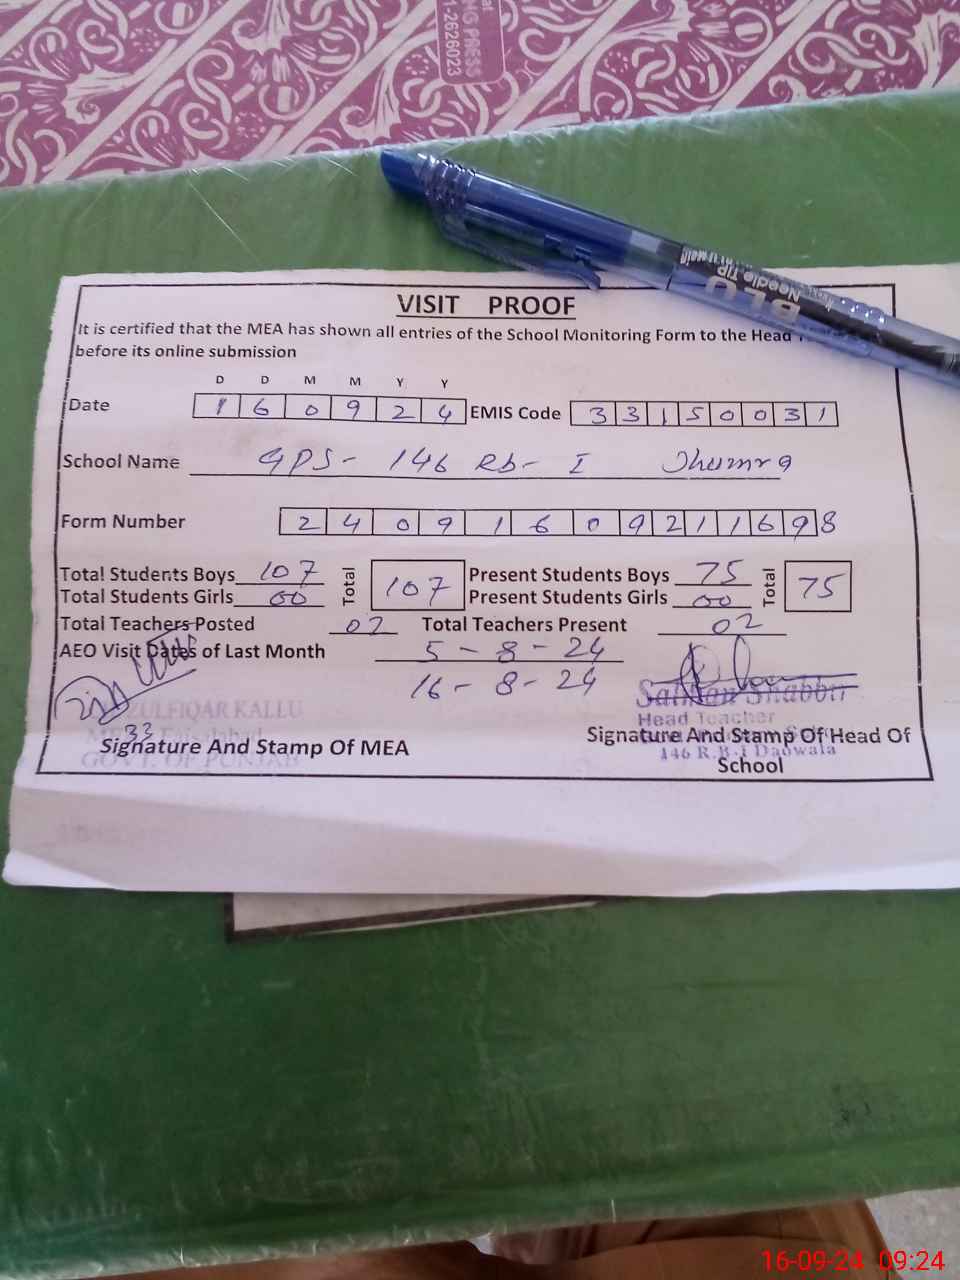 1-2626023
NG PRESS
BLU
Needle TIP
VISIT PROOF
It is certified that the MEA has shown all entries of the School Monitoring Form to the Head
before its online submission
D D M M Y Y
Date 1 6 0 9 2 4 EMIS Code 3 3 1 5 0 0 3 1
School Name GPS- 146 Rb- I Jhumra
Form Number 2 4 0 9 1 6 0 9 2 1 1 6 9 8
Total Students Boys 107 Total 107 Present Students Boys 75 Total 75
Total Students Girls 00 Present Students Girls 00
Total Teachers Posted 02 Total Teachers Present 02
AEO Visit Dates of Last Month 5-8-24
16-8-24
Salman Shabbir
Head Teacher
146 R.B-I Dadwala
ZULFIQAR KALLU
33 Faisalabad
GOVT. OF PUNJAB
Signature And Stamp Of MEA
Signature And Stamp Of Head Of
School
16-09-24 09:24